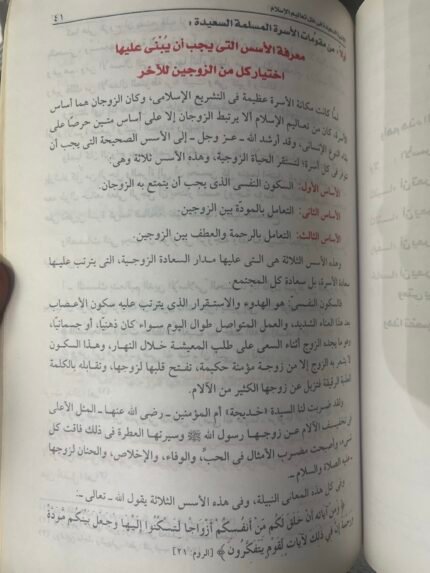 الأسرة السعيدة فى ظل تعاليم الإسلام
٤١
أولاً: من مقومات الأسرة المسلمة السعيدة:
معرفة الأسس التى يجب أن يُبْنَى عليها
اختيار كل من الزوجين للآخر
لمَّا كانت مكانة الأسرة عظيمة فى التشريع الإسلامى، وكان الزوجان هما أساس
الأسرة، كان من تعاليم الإسلام ألا يرتبط الزوجان إلا على أساس متين حرصًا على
بقاء النوع الإنسانى، وقد أرشد الله ـ عز وجل ـ إلى الأسس الصحيحة التى يجب أن
تتوافر فى كل أسرة؛ لتستقر الحياة الزوجية، وهذه الأسس ثلاثة وهى:
الأساس الأول: السكون النفسى الذى يجب أن يتمتع به الزوجان.
الأساس الثانى: التعامل بالمودّة بين الزوجين.
الأساس الثالث: التعامل بالرحمة والعطف بين الزوجين.
وهذه الأسس الثلاثة هى التى عليها مدار السعادة الزوجية، التى يترتب عليها
سعادة الأسرة، بل سعادة كل المجتمع.
فالسكون النفسىّ: هو الهدوء والاستقرار الذى يترتب عليه سكون الأعصاب
بعد هذا العناء الشديد، والعمل المتواصل طوال اليوم سواء كان ذهنيًا، أو جسمانيًا،
وهو ما يجده الزوج أثناء السعى على طلب المعيشة خلال النهار، وهذا السكون
لا يشعر به الزوج إلا من زوجة مؤمنة حكيمة، تفتح قلبها لزوجها، وتقابله بالكلمة
الطيبة الرقيقة فتزيل عن زوجها الكثير من الآلام.
ولقد ضربت لنا السيدة «خديجة» أم المؤمنين ـ رضى الله عنها ـ المثل الأعلى
فى تخفيف الآلام عن زوجها رسول الله ﷺ وسيرتها العطرة فى ذلك فاقت كل
شىء، وأصبحت مضرب الأمثال فى الحب، والوفاء، والإخلاص، والحنان لزوجها
ـ عليه الصلاة والسلام ـ.
وفى كل هذه المعانى النبيلة، وفى هذه الأسس الثلاثة يقول الله ـ تعالى ـ:
﴿ وَمِنْ آيَاتِهِ أَنْ خَلَقَ لَكُم مِّنْ أَنفُسِكُمْ أَزْوَاجًا لِّتَسْكُنُوا إِلَيْهَا وَجَعَلَ بَيْنَكُم مَّوَدَّةً
وَرَحْمَةً إِنَّ فِي ذَلِكَ لَآيَاتٍ لِّقَوْمٍ يَتَفَكَّرُونَ ﴾ [الروم: ٢١]